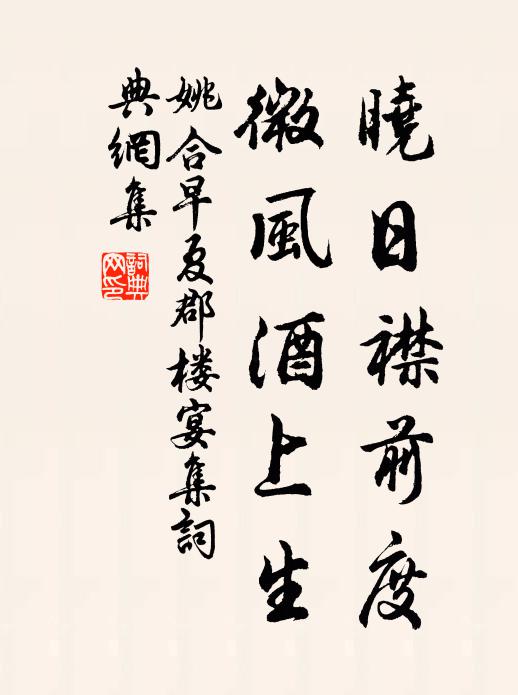 曉日襟前度
微風酒上生
姚合早夏郡楼宴集詞
典網集
詞典网印